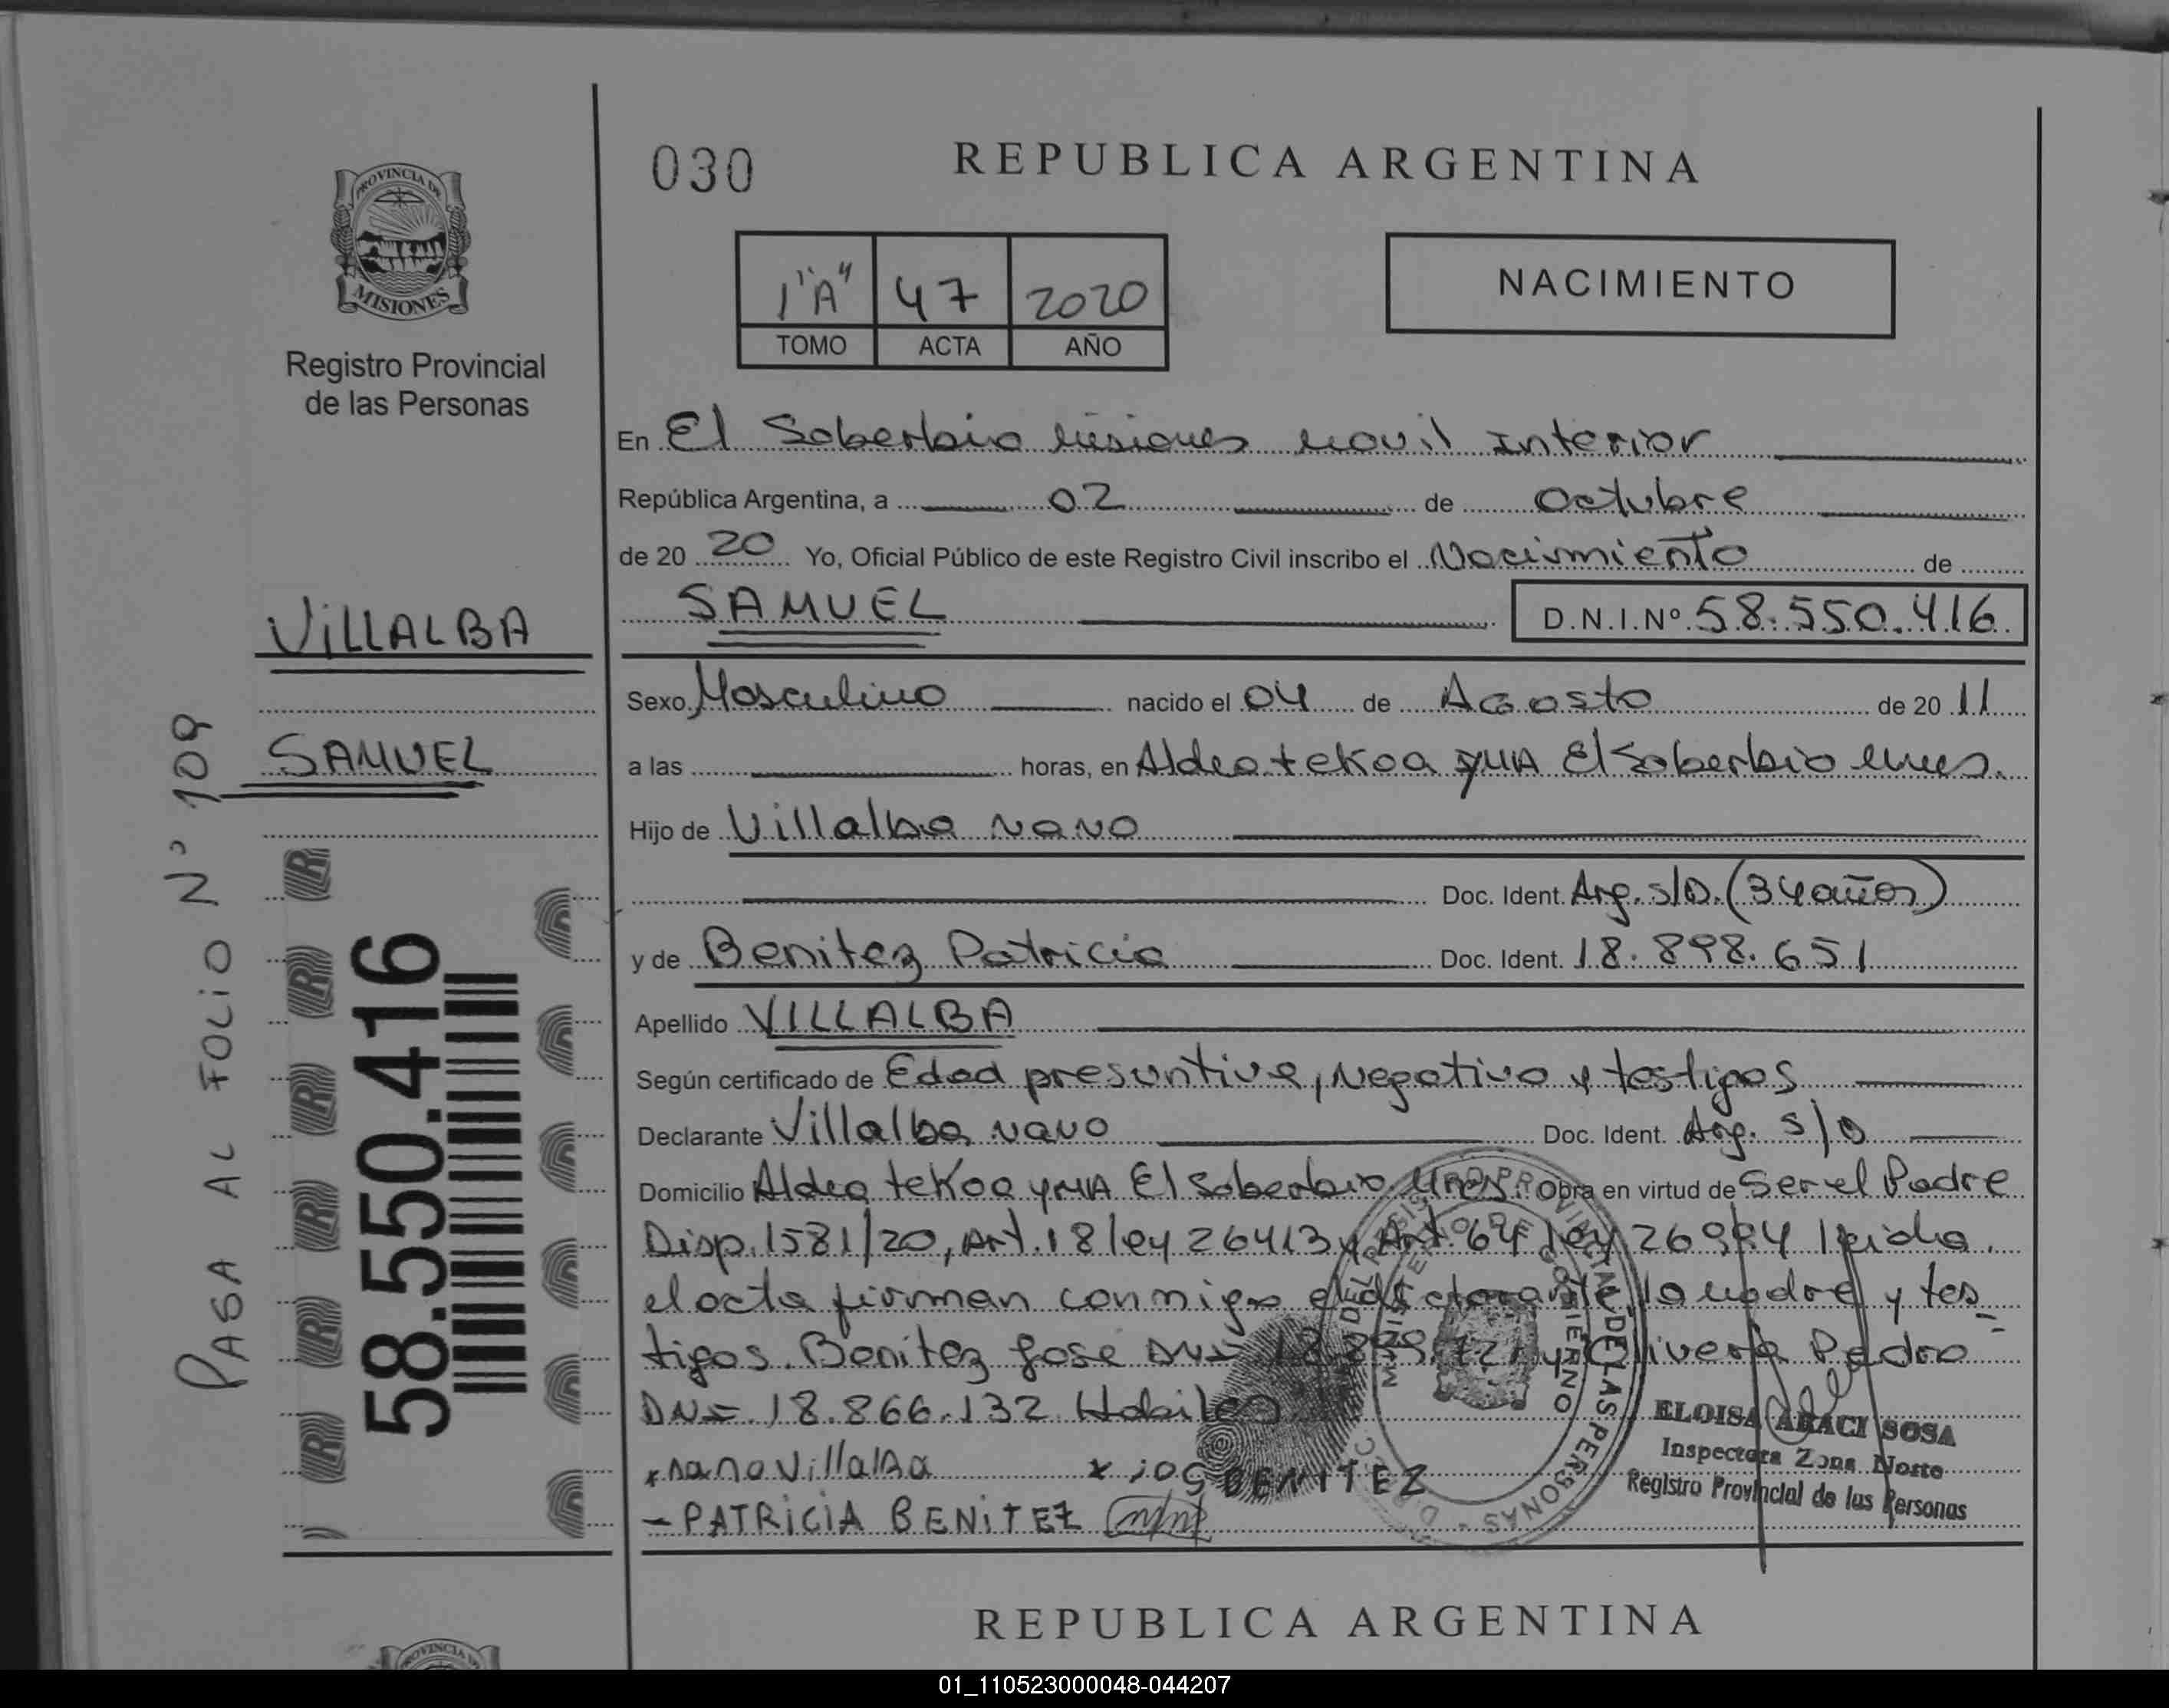 PROVINCIA DE
MISIONES
Registro Provincial
de las Personas
030
REPUBLICA ARGENTINA
1"A" 47 2020
TOMO ACTA AÑO
NACIMIENTO
En El Soberbio Misiones Movil Interior
República Argentina, a 02 de Octubre
de 20 20 Yo, Oficial Público de este Registro Civil inscribo el Nacimiento de
SAMUEL D.N.I.Nº 58.550.416
VILLALBA
SAMUEL
PASA AL FOLIO Nº 109
58.550.416
Sexo Masculino nacido el 04 de Agosto de 20 11
a las horas, en Aldea tekoa YMA El Soberbio Mnes.
Hijo de Villalba Nano
Doc. Ident. Arg. S/D. (34 años)
y de Benitez Patricia Doc. Ident. 18.898.651
Apellido VILLALBA
Según certificado de Edad presuntiva, Negativo y testigos
Declarante Villalba Nano Doc. Ident. Arg. S/D
Domicilio Aldea tekoa YMA El Soberbio Obra en virtud de Ser el Padre
Disp. 1581/20, Art. 18 ley 26413 y Art. 64 ley 26994 leida
el acta firman conmigo el declarante, la madre y tes
tigos. Benitez Jose DNI y Olivera Pedro
DNI 18.866.132 Habiles
x nano villalba x JOSE BENITEZ
- PATRICIA BENITEZ
ELOISA ARACI SOSA
Inspectora Zona Norte
Registro Provincial de las Personas
REPUBLICA ARGENTINA
01_110523000048-044207